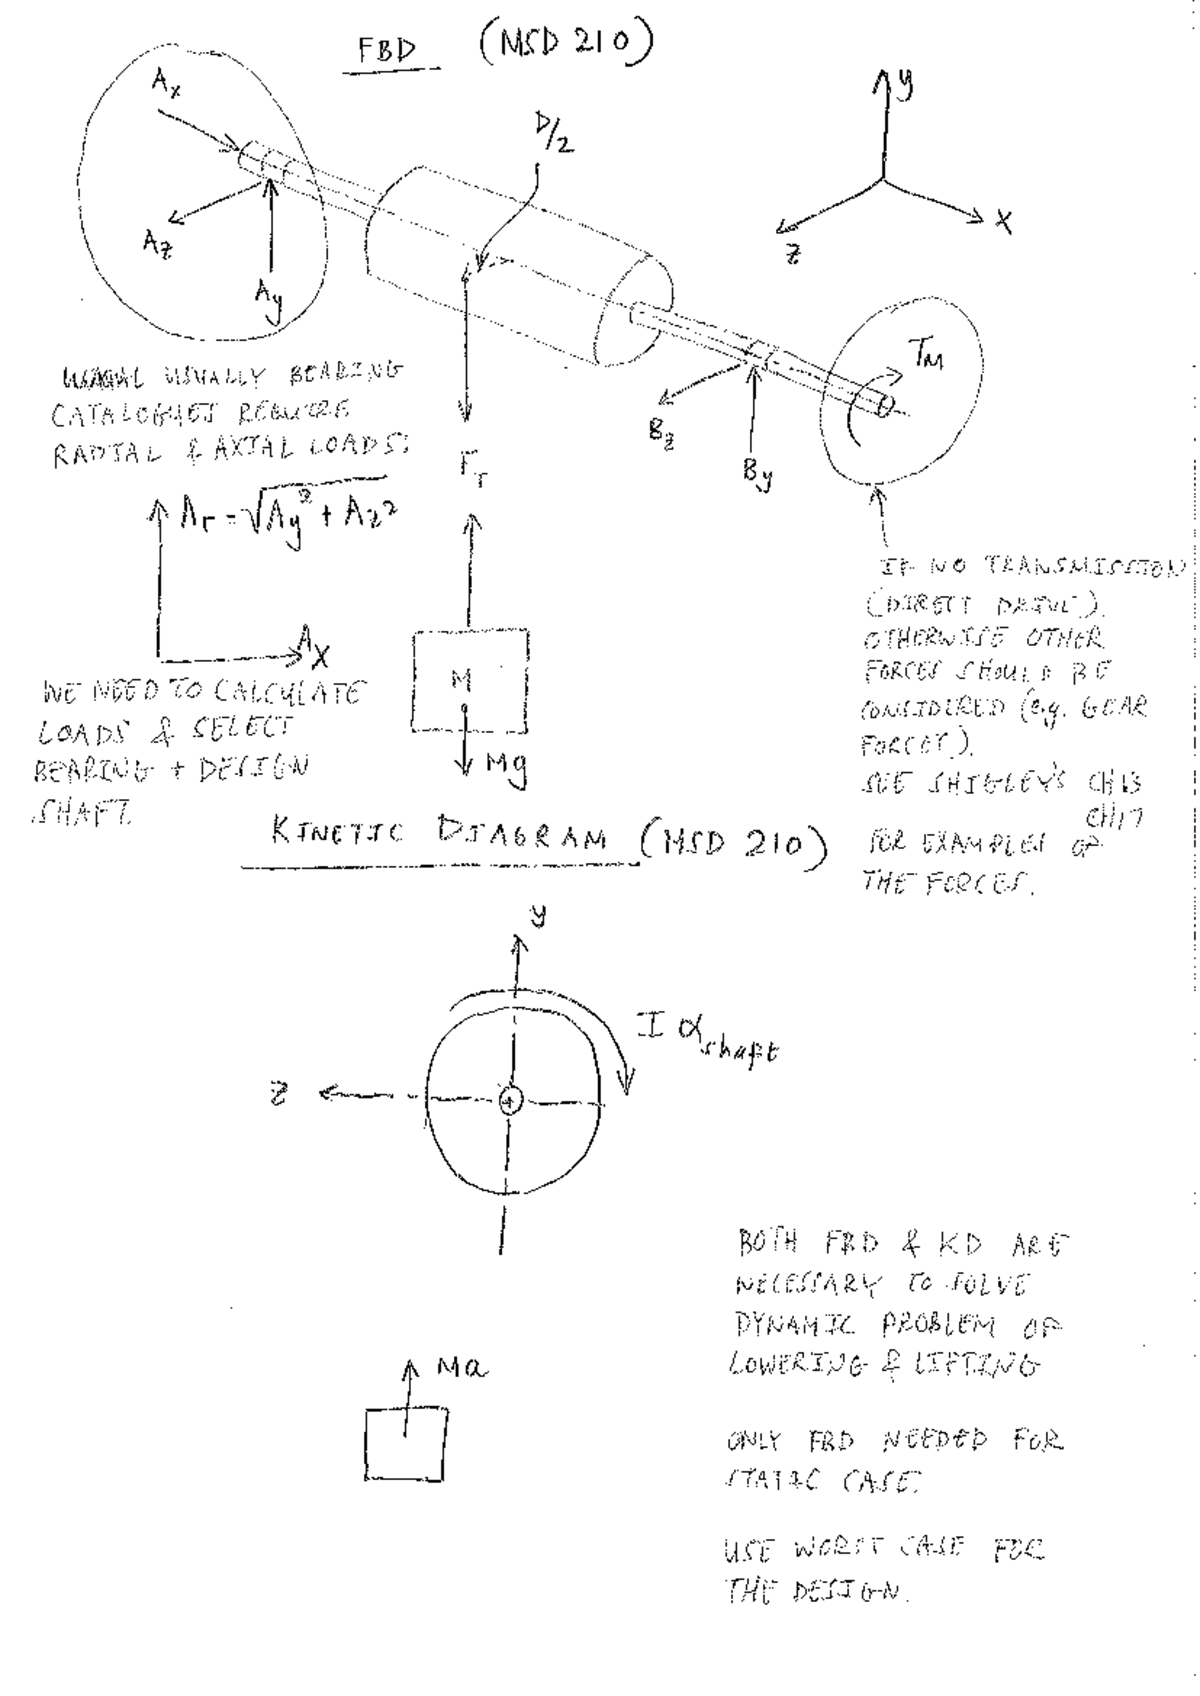 FBD (MSD 210)
Ax
Az
Ay
D/2
y
x
z
TM
Bz
By
FT
USUALLY BEARING
CATALOGUES REQUIRE
RADIAL & AXIAL LOADS:
Ar = √Ay² + Az²
Ax
WE NEED TO CALCULATE
LOADS & SELECT
BEARING + DESIGN
SHAFT.
M
Mg
IF NO TRANSMISSION
(DIRECT DRIVE).
OTHERWISE OTHER
FORCES SHOULD BE
CONSIDERED (e.g. GEAR
FORCES).
SEE SHIGLEY'S CH13
CH17
FOR EXAMPLES OF
THE FORCES.
KINETIC DIAGRAM (MSD 210)
y
I α shaft
z
Ma
BOTH FBD & KD ARE
NECESSARY TO SOLVE
DYNAMIC PROBLEM OF
LOWERING & LIFTING
ONLY FBD NEEDED FOR
STATIC CASE.
USE WORST CASE FOR
THE DESIGN.